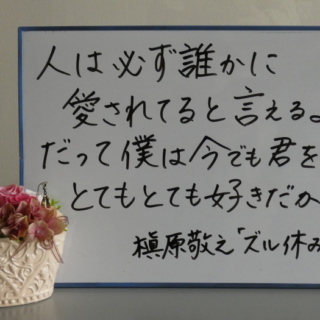 人は必ず誰かに
愛されてると言えるよ
だって僕は今でも君を
とてもとても好きだか
槇原敬之「ズル休み